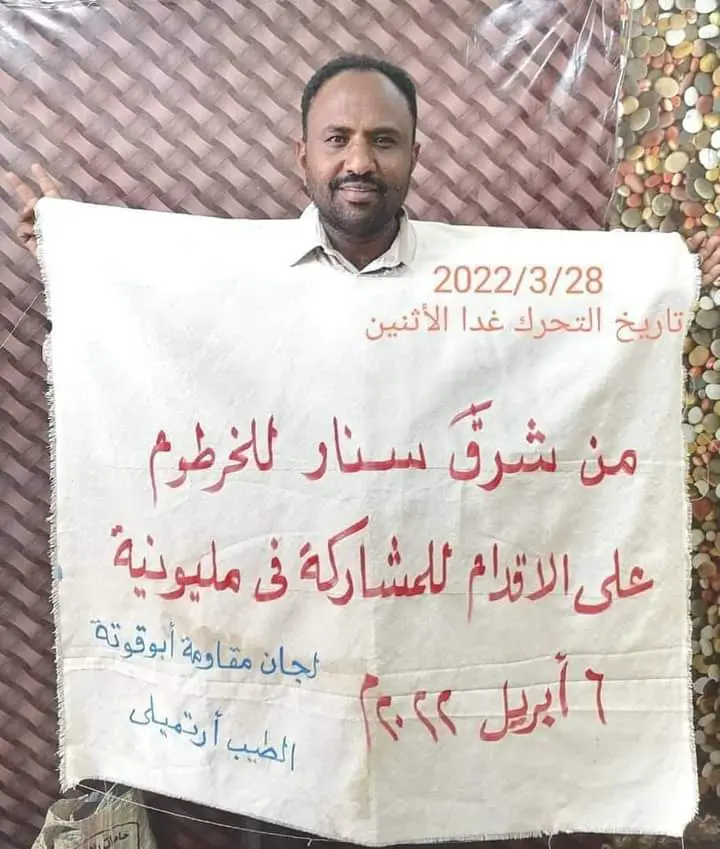 2022/3/28
تاريخ التحرك غدا الأثنين
من شرقَ سنار للخرطوم
على الاقدام للمشاركة فى مليونية
٦ أبريل ٢٠٢٢م
لجان مقاومة أبوقوتة
الطيب أرتميلى